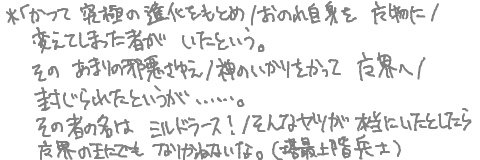 *「かつて 究極の進化をもとめ/おのれ自身を 魔物に/
変えてしまった者が いたという。
その あまりの邪悪さゆえ/神のいかりをかって 魔界へ/
封じられたというが……。
その者の名は ミルドラース!/そんなヤツが本当にいたとしたら
魔界の王にでも なりかねないな。(塔最上階兵士)